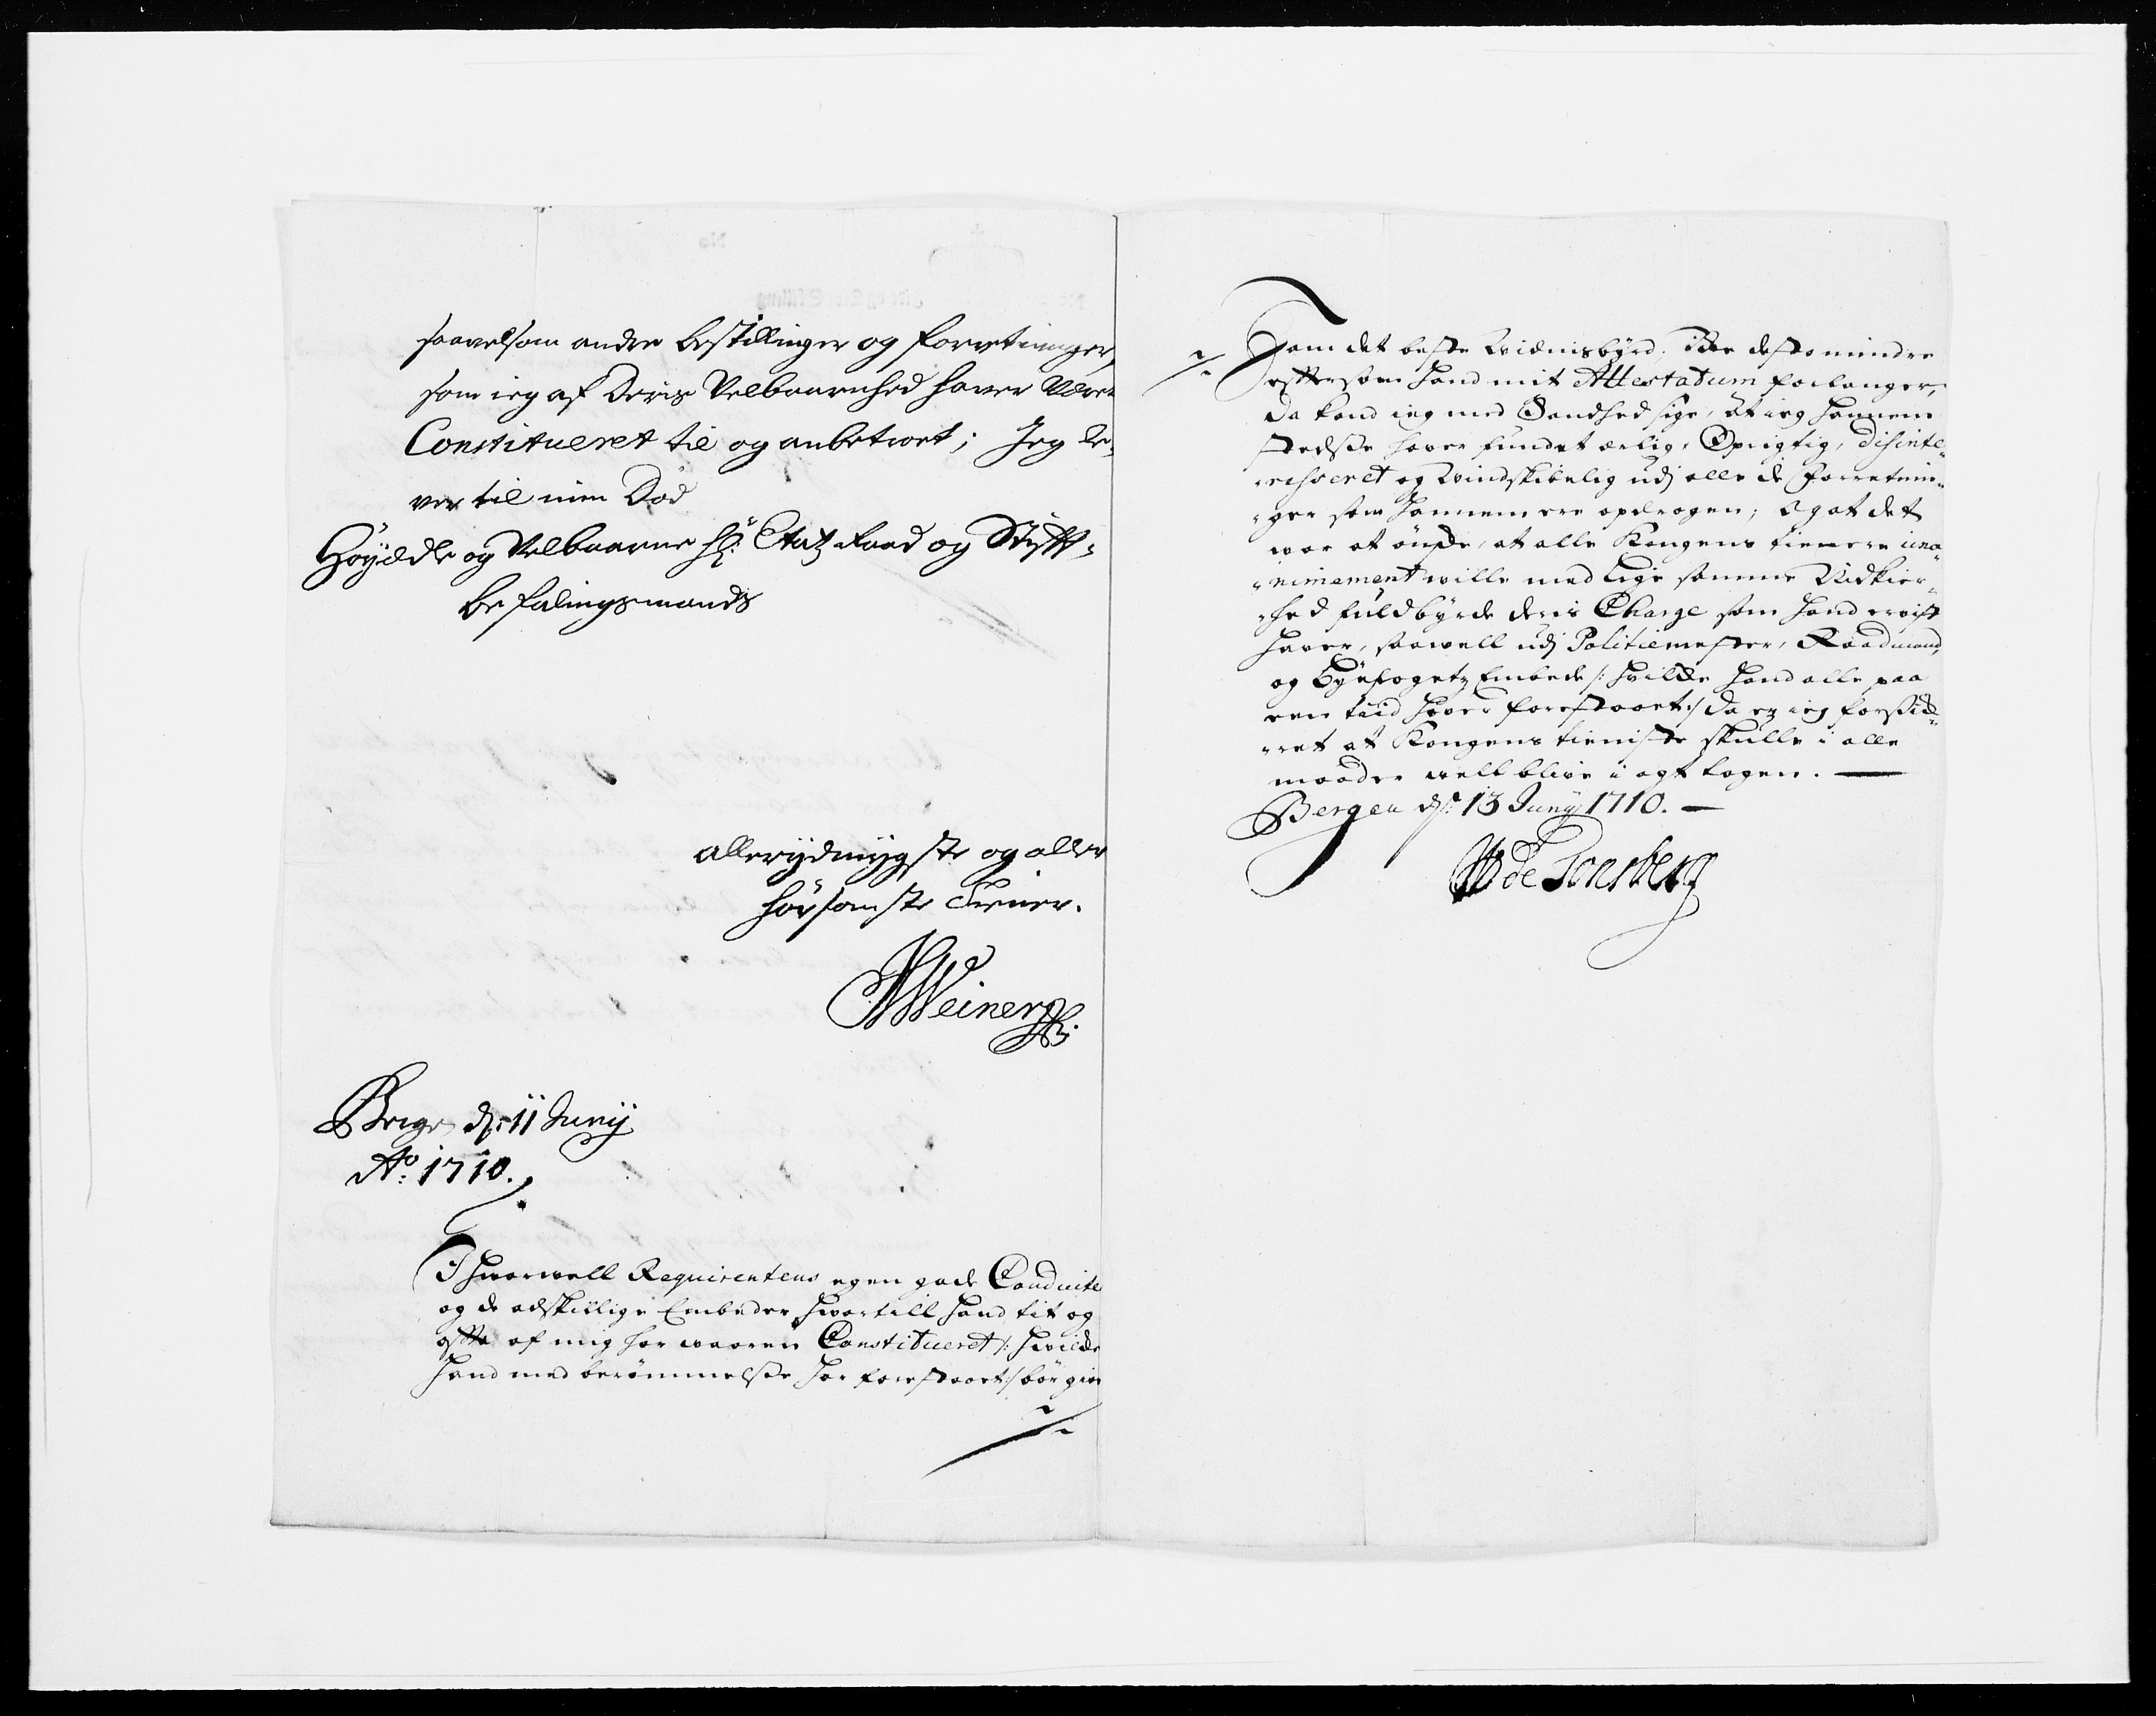 saavelsom andre bestillinger og forretninger,
som ieg af Deris Velbaarenhed haver været
Constitueret til og anbetroet; Jeg le-
ver til min Död
Höyædle og Velbaarne Hr: Etatz Raad og Stifft-
befalingsmands
allerydmygste og aller
hörsomste Tiener.
Weiner
Bergen d: 11 Junij
Ao: 1710.
Ihvorwell Requirentens egen gode Conduite
og de adskillige Embeder hvortill hand tit og
offte af mig har waaren Constitueret /: hvilcke
hand med berömmelse har forestaaet :/ bör give
ham det beste Widnisbyrd, icke desto mindre
efftersom hand mit Attestatum forlanger,
da kand ieg med Sandhed sige, at ieg hannem
stedse haver fundet ærlig, Oprigtig, disinte-
resseret og Windskibelig udj alle de forretnin-
ger som hannem ere opdragen; og at det
war at önske, at alle Kongens tienere una-
nimement wille med lige samme Nidkier-
hed fuldbyrde deris Charge som hand erwist
haver, saawell udj Politiemester, Raadmand,
og Byefogetz Embede /: hvilcke hand alle paa
een tiid haver forestaaet :/ da er ieg forsick-
ret at Kongens tieniste skulle i alle
maader well blive i agt tagen.
Bergen d: 13 Junij 1710.
W de Tonsberg